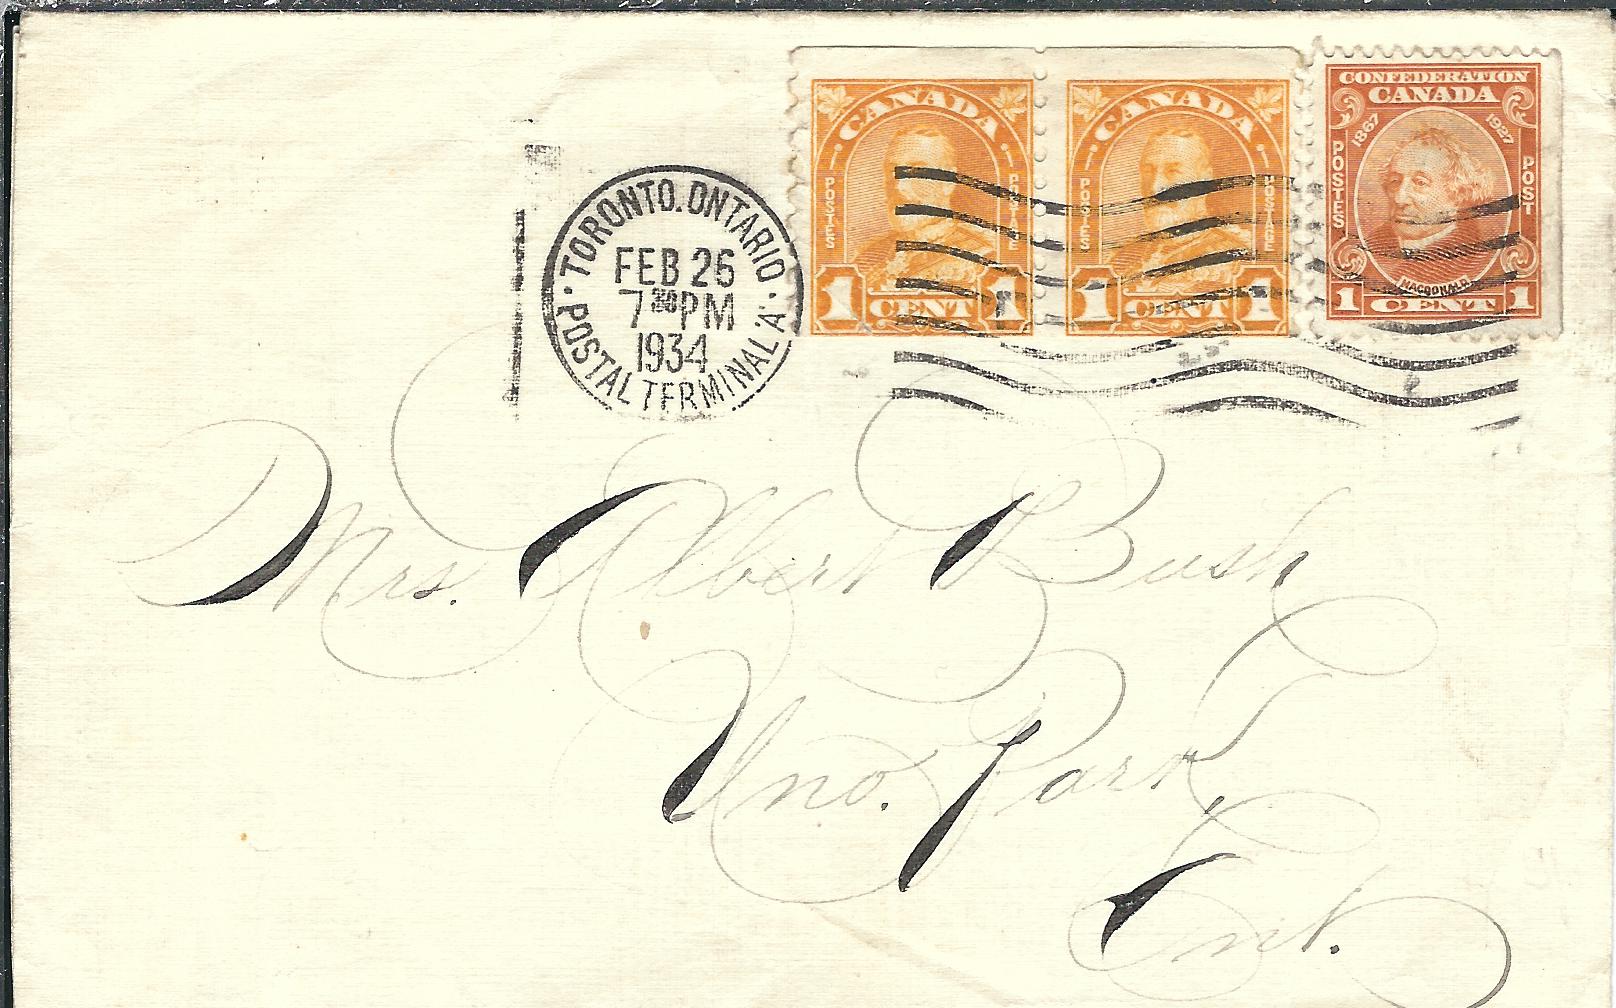 TORONTO. ONTARIO
FEB 26
7 30 PM
1934
POSTAL TERMINAL 'A'
CANADA
POSTES POSTAGE
1 CENT 1
CANADA
POSTES POSTAGE
1 CENT 1
CONFEDERATION
CANADA
1867 1927
POSTES POST
MACDONALD
1 CENT 1
Mrs. Albert Bush
Uno. Park,
Ont.